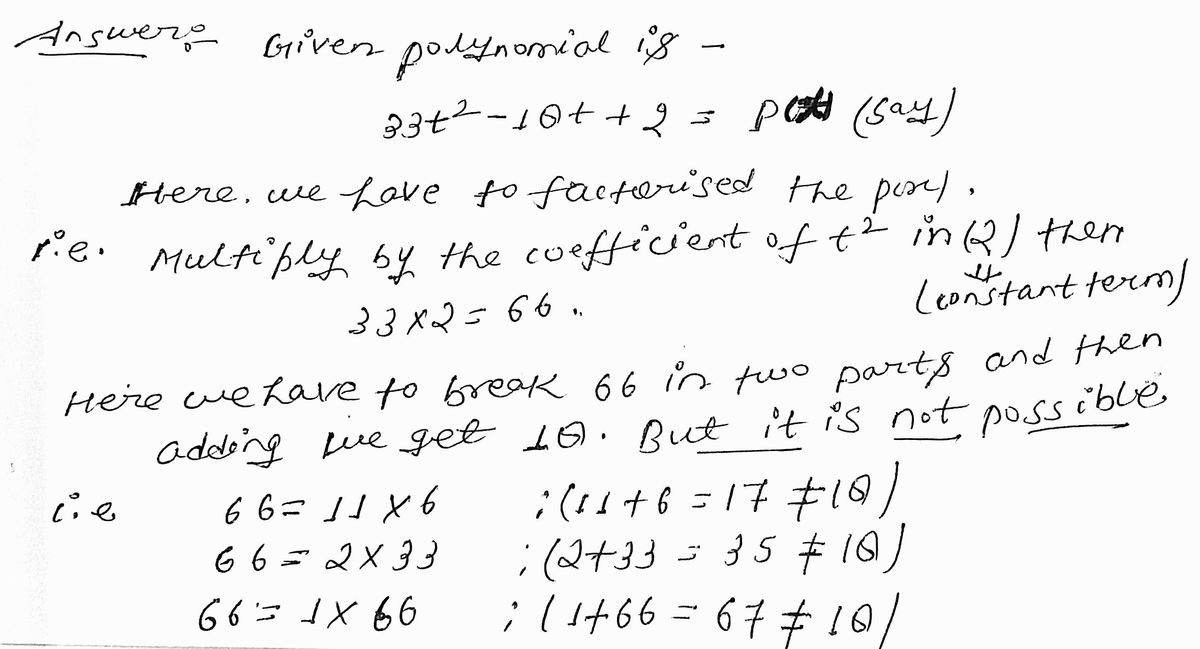 Answer:
Given polynomial is -
33t² - 10t + 2 = p(t) (say)
Here, we have to factorised the p(t).
i.e. Multiply by the coefficient of t² in (2) then
(constant term)
33 × 2 = 66.
Here we have to break 66 in two parts and then
adding we get 10. But it is not possible.
i.e 66 = 11 × 6 ; (11 + 6 = 17 ≠ 10)
66 = 2 × 33 ; (2 + 33 = 35 ≠ 10)
66 = 1 × 66 ; (1 + 66 = 67 ≠ 10)